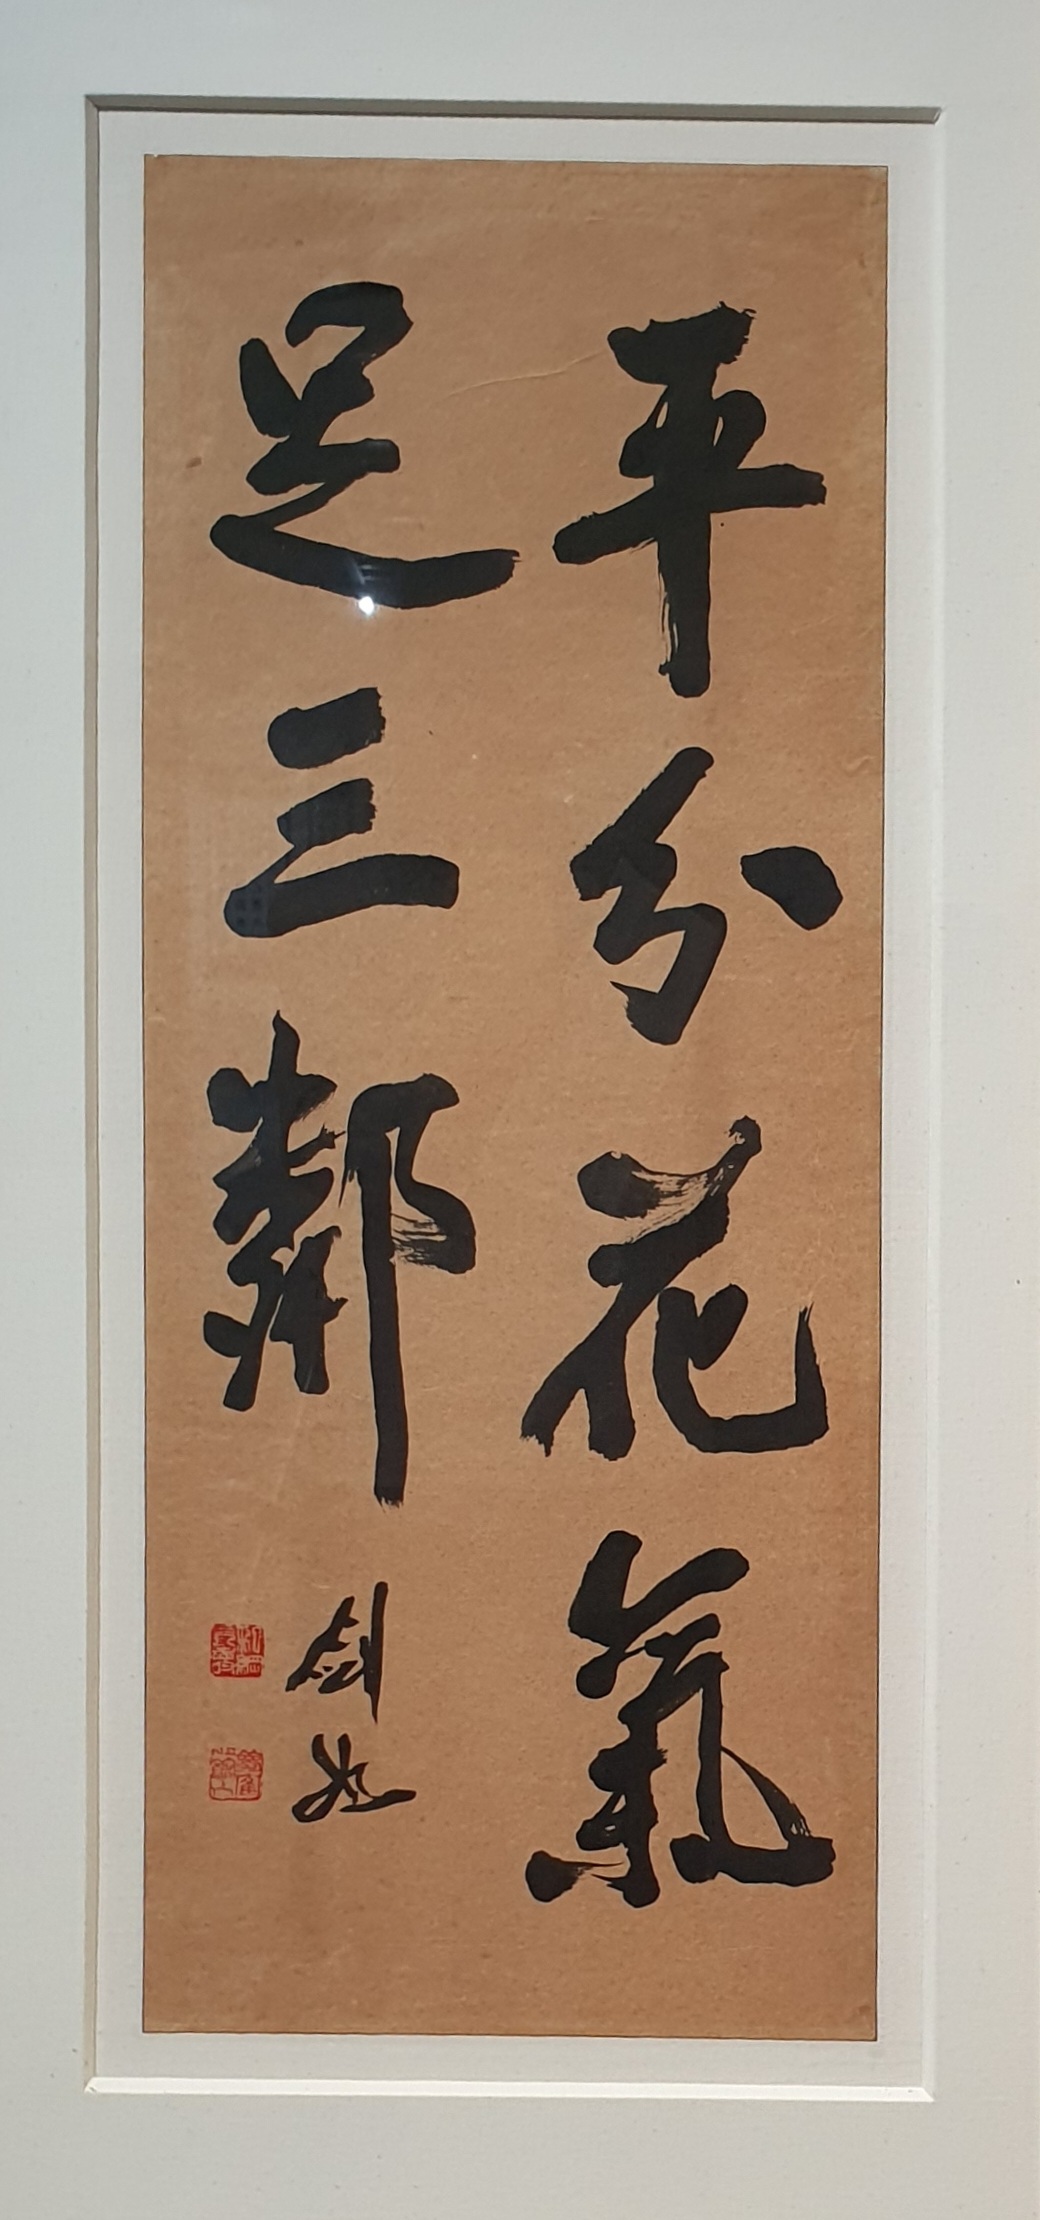 平分花氣
足三鄰
劍如